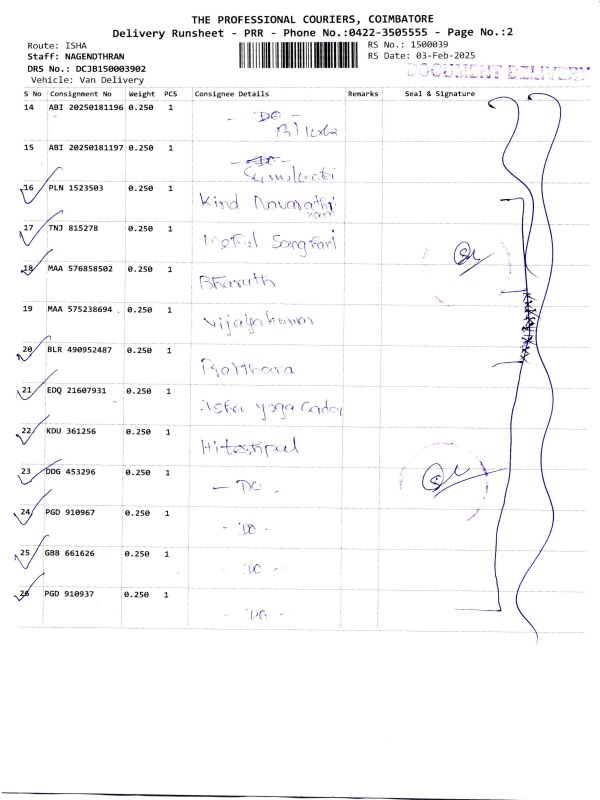 THE PROFESSIONAL COURIERS, COIMBATORE
Delivery Runsheet - PRR - Phone No.:0422-3505555 - Page No.:2
Route: ISHA
RS No.: 1500039
Staff: NAGENDTHRAN
RS Date: 03-Feb-2025
DRS No.: DCJB150003902
DOCUMENT DELIVERY
Vehicle: Van Delivery
S No Consignment No Weight PCS Consignee Details Remarks Seal & Signature
14 ABI 20250181196 0.250 1 - DO -
15 ABI 20250181197 0.250 1
16 PLN 1523503 0.250 1 Kind
17 TNJ 815278 0.250 1
18 MAA 576858502 0.250 1 Bharath
19 MAA 575238694 0.250 1 Vijayakumar
20 BLR 490952487 0.250 1
21 EDQ 21607931 0.250 1 Isha yoga
22 KDU 361256 0.250 1
23 DDG 453296 0.250 1 - DO -
24 PGD 910967 0.250 1 - DO -
25 GBB 661626 0.250 1 - DO -
26 PGD 910937 0.250 1 - DO -